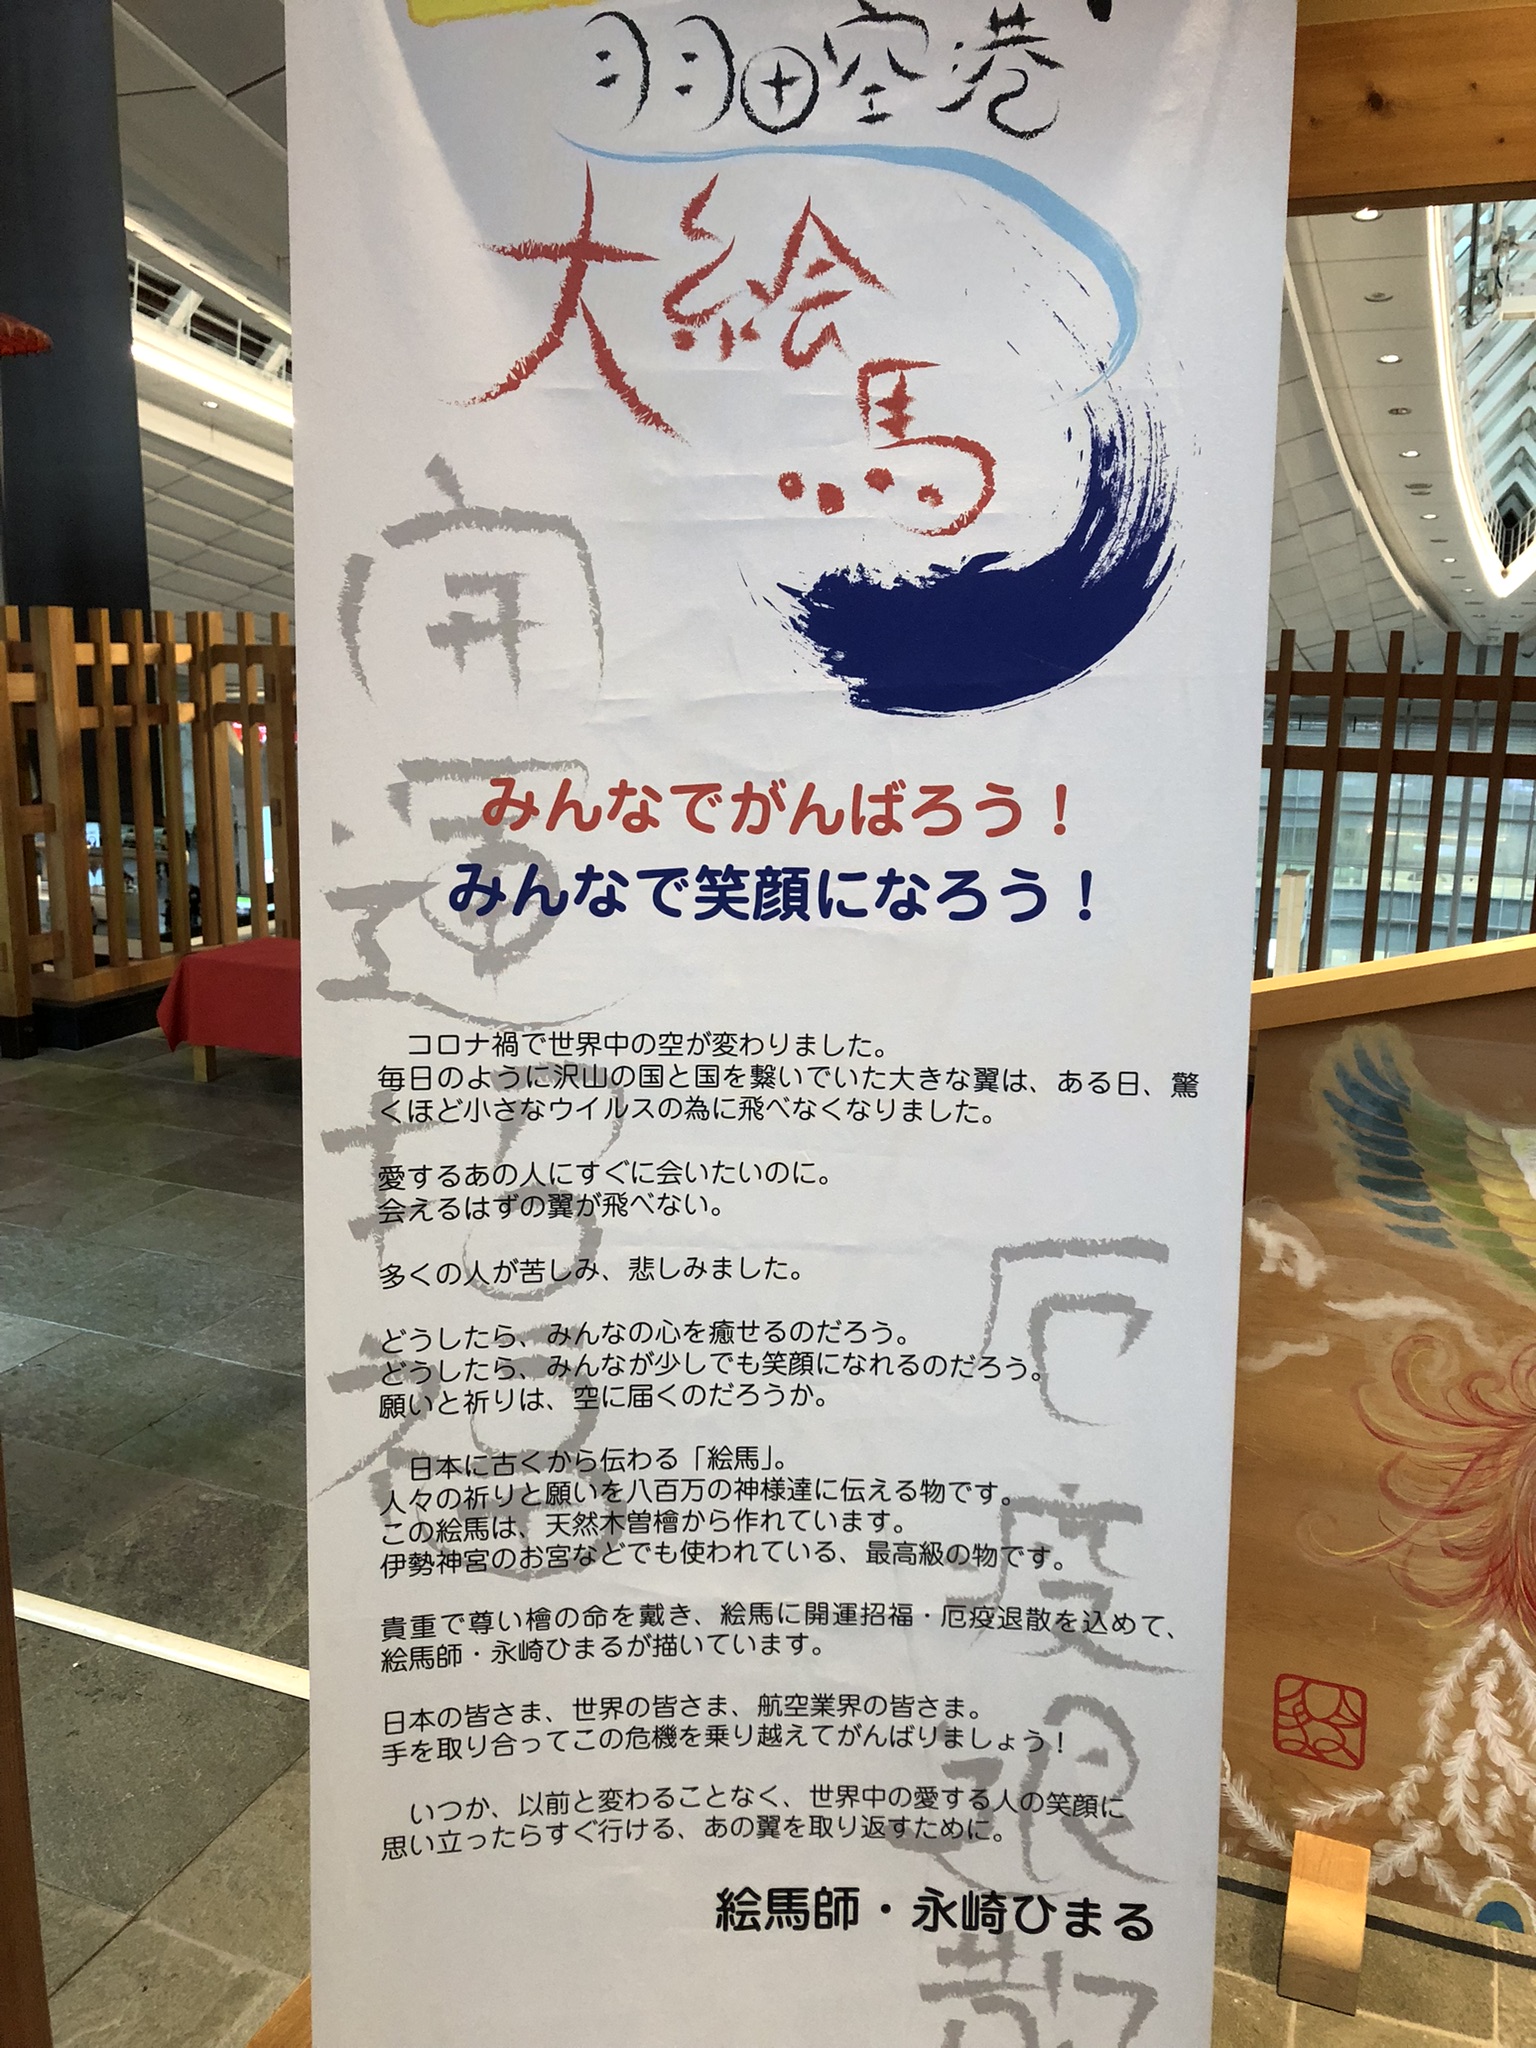 羽田空港
大絵馬
開運招福
みんなでがんばろう！
みんなで笑顔になろう！
コロナ禍で世界中の空が変わりました。
毎日のように沢山の国と国を繋いでいた大きな翼は、ある日、驚
くほど小さなウイルスの為に飛べなくなりました。
愛するあの人にすぐに会いたいのに。
会えるはずの翼が飛べない。
多くの人が苦しみ、悲しみました。
どうしたら、みんなの心を癒せるのだろう。
どうしたら、みんなが少しでも笑顔になれるのだろう。
願いと祈りは、空に届くのだろうか。
日本に古くから伝わる「絵馬」。
人々の祈りと願いを八百万の神様達に伝える物です。
この絵馬は、天然木曽檜から作れています。
伊勢神宮のお宮などでも使われている、最高級の物です。
貴重で尊い檜の命を戴き、絵馬に開運招福・厄疫退散を込めて、
絵馬師・永崎ひまるが描いています。
日本の皆さま、世界の皆さま、航空業界の皆さま。
手を取り合ってこの危機を乗り越えてがんばりましょう！
いつか、以前と変わることなく、世界中の愛する人の笑顔に
思い立ったらすぐ行ける、あの翼を取り返すために。
厄疫退散
絵馬師・永崎ひまる